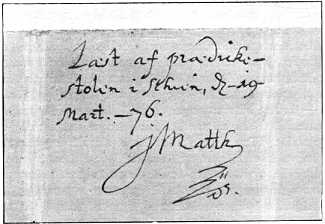 Læst af prædicke-
stolen i Schien, d. 19
Mart. -76.
J Matth